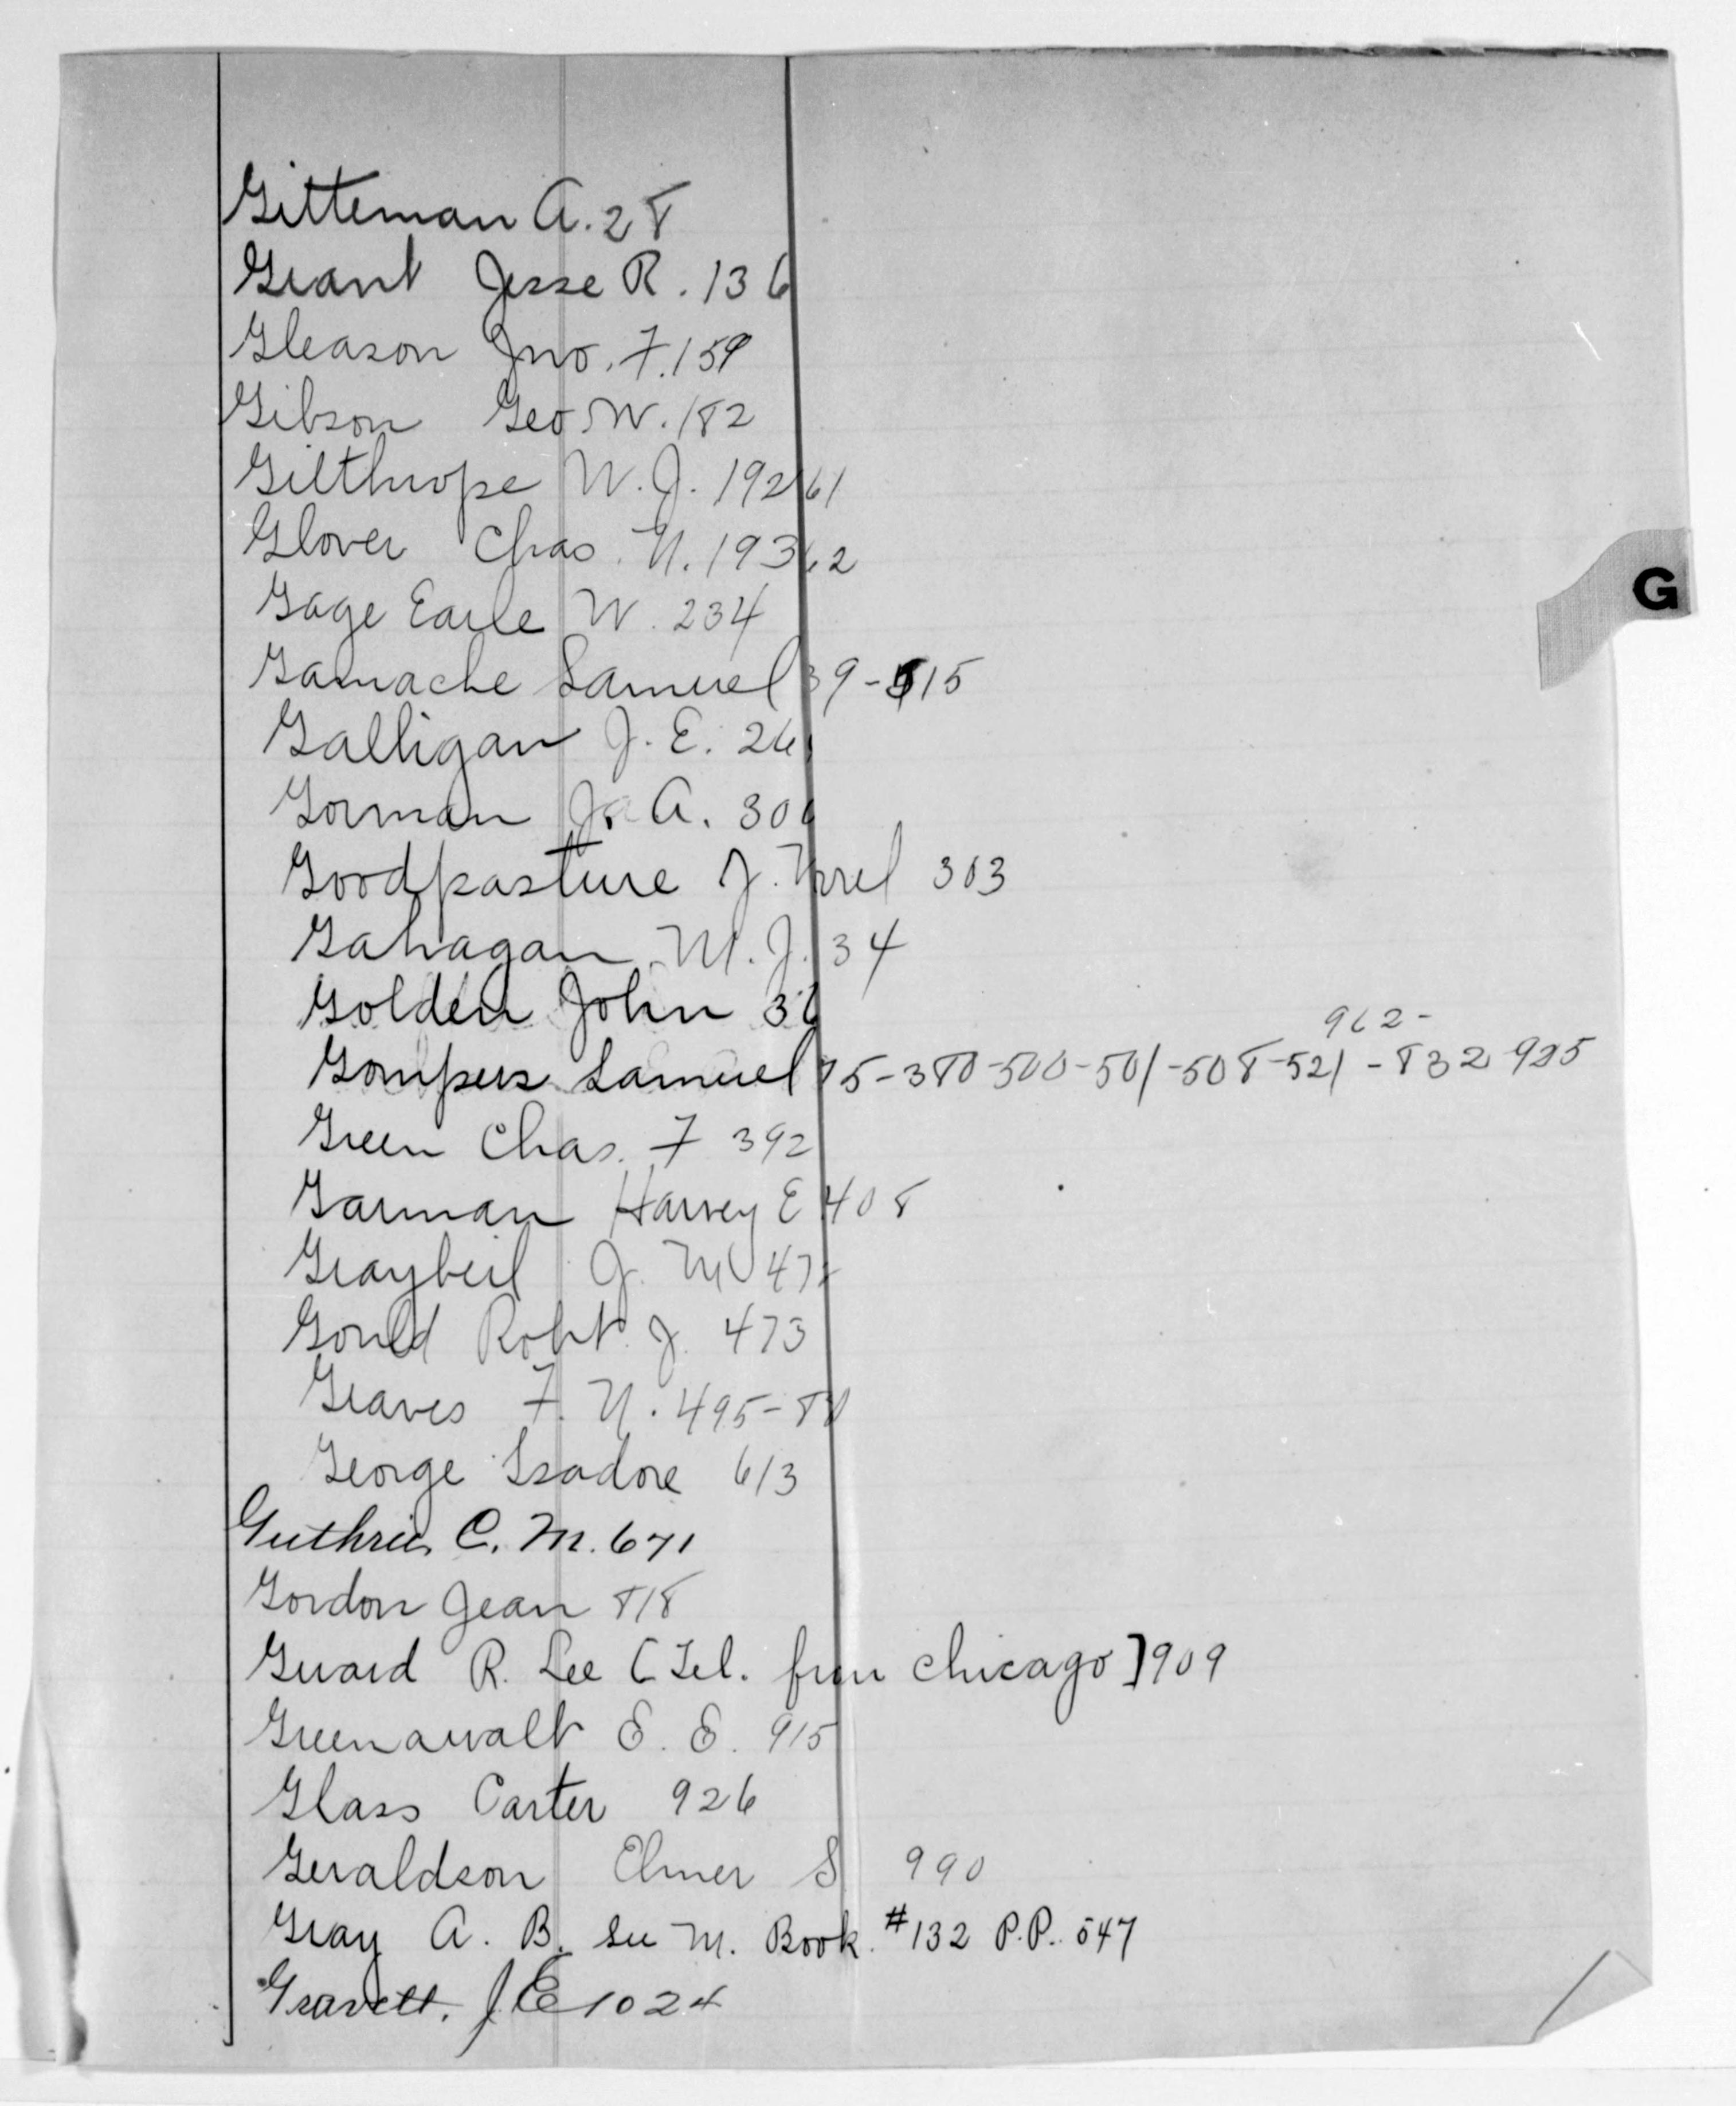 Gitteman A. 28
Grant Jesse R. 136
Gleason Jno. F. 159
Gibson Geo W. 182
Gilthrope W. J. 192 61
Glover Chas. N. 193 62
Gage Earle W. 234
Gamache Samuel 39-515
Galligan J. E. 26
Gorman A. 30
Goodpasture J. 303
Gahagan M. J. 34
Golden John 3
962-
Gompers Samuel 75-380-500-501-508-521-832 925
Green Chas. F 392
Garman Harvey E 408
Graybeil J. M 47
Gould Robt. J. 473
Graves F. N. 495-
George Isadore 613
Guthrie C. M. 671
Gordon Jean 818
Guard R. Lee [Tel. from Chicago] 909
Greenawalt E. E. 915
Glass Carter 926
Geraldson Elmer S 990
Gray A. B. See M. Book. #132 P.P. 547
Gravett. J E 1024
G